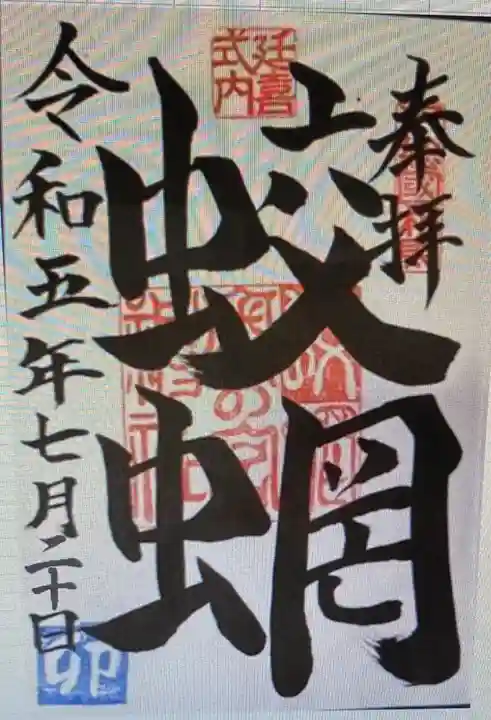 奉拝
延喜
式内
蛟蝄
令和五年七月二十日
卯